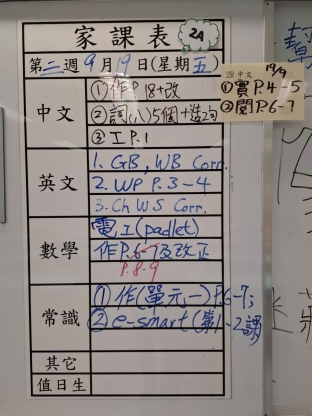 家課表 2A
第二週9月19日(星期五)
中文
①作P.18+改
②詞(八)5個+造2句
③工P.1
英文
1. GB, WB Corr.
2. WP P.3-4
3. Ch WS Corr.
數學
電工(padlet)
作P.6-7及改正
P.8-9
常識
①作(單元一)P.6-7;
②e-smart(第1、2課
其它
值日生
2B 中文 19/9
①實P.4-5
②閱P.6-7